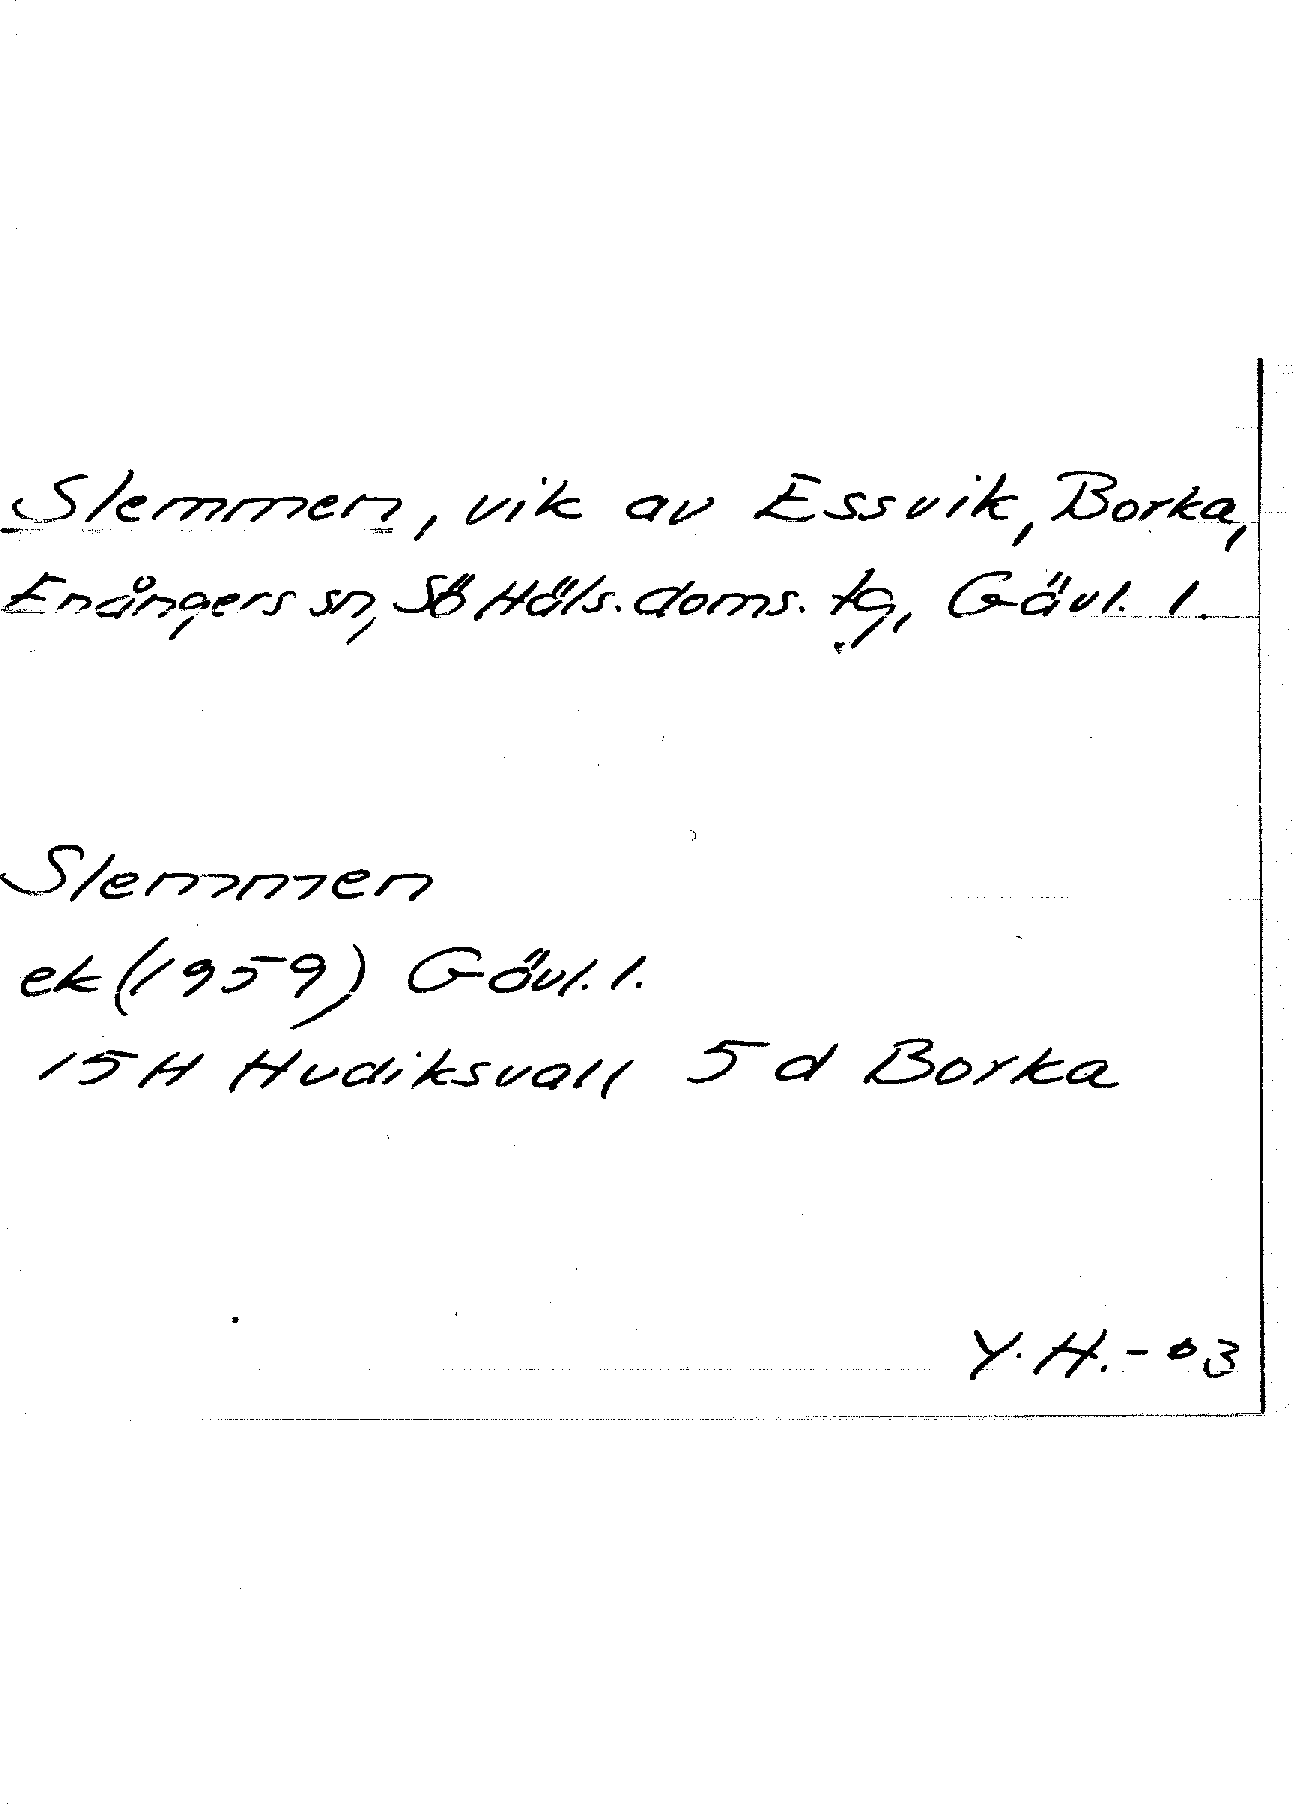 Slemmen, vik av Essvik, Borka,
Enångers sn, Sö Häls. doms. tg, Gävl. l.
Slemmen
ek (1959) Gävl. l.
15H Hudiksvall 5 d Borka
Y. H. - 03